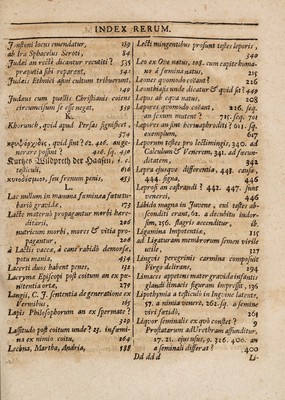 INDEX RERUM.
Justini locus emendatur, 189
ab ira Sphæulus Scroti, 84
Judæi an rectè dicantur recutiti? 535
præputia sibi reparent, 541
Judæi Ethnici apud cultum tribuerunt,
149
Judæus cum puellis Christianis coiens
circumcisum se esse negat, 539
K.
Khorunch, quid apud Persas significet,
574
416. auge-
nerare possint? 408. seq. 410
Kurtzes Wildpreth der Haasen, i. e.
testiculi, 616
seu frenum penis, 453
L.
Lac nullum in mamma fœmina fatutu-
bariò gravidæ, 173
Lacte maternò propagantur morbi here-
ditarii, 206
nutricum morbi, mores & vitia pro-
pagantur, 206
à Lactis vacca, à cane rabidò demorsæ,
potu mania, 454
Lacerti duos habent penes, 152
Lacryma Episcopi post coitum an ex pœ-
nitentia orta, 279
Langii, C. J. sententia de generatione ex
Vermibus, 285
Lapis Philosophorum an ex spermate?
329
Lassitudo post coitum unde? 25. in fœmi-
na ex nimio coitu, 264
Lecæna, Martha, Andria, 188
Lecti mingentibus prosunt testes leporis,
340
Leo ex Ova natus, 108. cum capite huma-
nò à fœmina natus, 215
Leones quomodo coeant? 226
Leonthiasis unde dicatur & quid sit? 449
Lepus ab equa natus, 208
Lepores quomodo coeant, 226. seq.
an sexum mutent? 711. seq. 701
Lepores an sint hermaphroditi? 611. sq.
exemplum, 617
Leporum testes pro lectimingio, 340. ad
Calculum & Venerem, 341. ad fœcun-
ditatem, 342
Lepra ejusque differentia, 443. causa,
444. signa, 446
Leprosi an castrandi? 442. 447. sunt
venerei, 446
Libido magna in Juvene, cui testes ab-
sconditi erant, 61. a decubitu indor-
sim, 256. flagris accenditur, ib.
Ligamina Impotentia, 115
ad Ligaturam membrorum semen virile
utile, 337
Lingens peregrinis carmina composuit
Virgo delirans, 194
Limacis appetens mater gravida infantis
glandi limacis figuram impressit, 196
Lipothymia à testiculo in Inguine latente,
57. a nimia venere, 262. sq. à semine
viri fœtidò, 261
Liquor seminalis ex quò constet? 9
Prostatarum ad Urethram affunditur,
17. 21. ejus usus, 9. 316. 400. an
à seminali differat? 400
Dd dd d
Li-